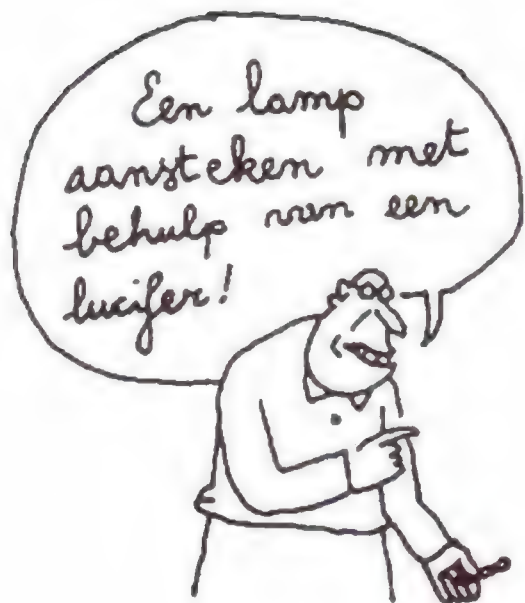 Een lamp
aansteken met
behulp van een
lucifer!